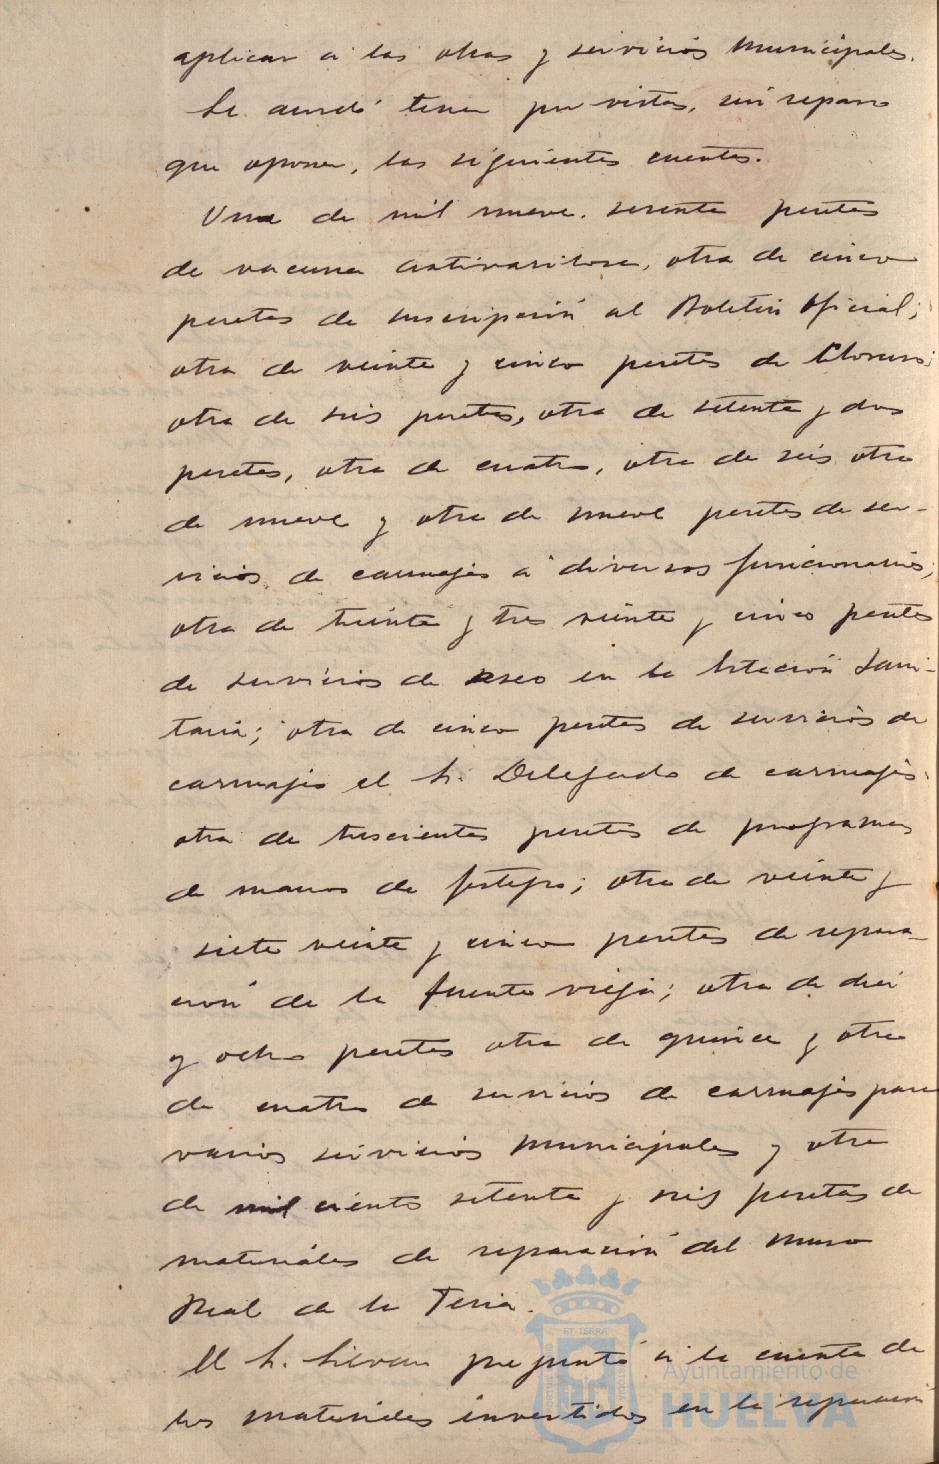 aplicar á las obras y servicios municipales.
Se acordó tener por vistas, sin reparo
que oponer, las siguientes cuentas.
Una de mil nueve. sesenta pesetas
de vacuna antivariolosa, otra de cinco
pesetas de suscripción al Boletin Oficial;
otra de veinte y cinco pesetas de Cloruro;
otra de seis pesetas, otra de setenta y dos
pesetas, otra de cuatro, otra de seis otra
de nueve y otra de nueve pesetas de ser-
vicios de carruajes á diversos funcionarios;
otra de treinta y tres veinte y cinco pesetas
de servicios de aseo en la Estación Sani-
taria; otra de cinco pesetas de servicios de
carruajes al Sr. Delegado de carruajes.
otra de trescientas pesetas de programas
de manos de festejos; otra de veinte y
siete veinte y cinco pesetas de repara-
ción de la fuente vieja; otra de diez
y ocho pesetas otra de quince y otra
de cuatro de servicios de carruajes para
varios servicios municipales y otra
de mil ciento setenta y seis pesetas de
materiales de reparación del muro
Real de la Feria.
El Sr. preguntó si la cuenta de
los materiales invertidos en la reparación
ET TERRAE
Ayuntamiento de
HUELVA